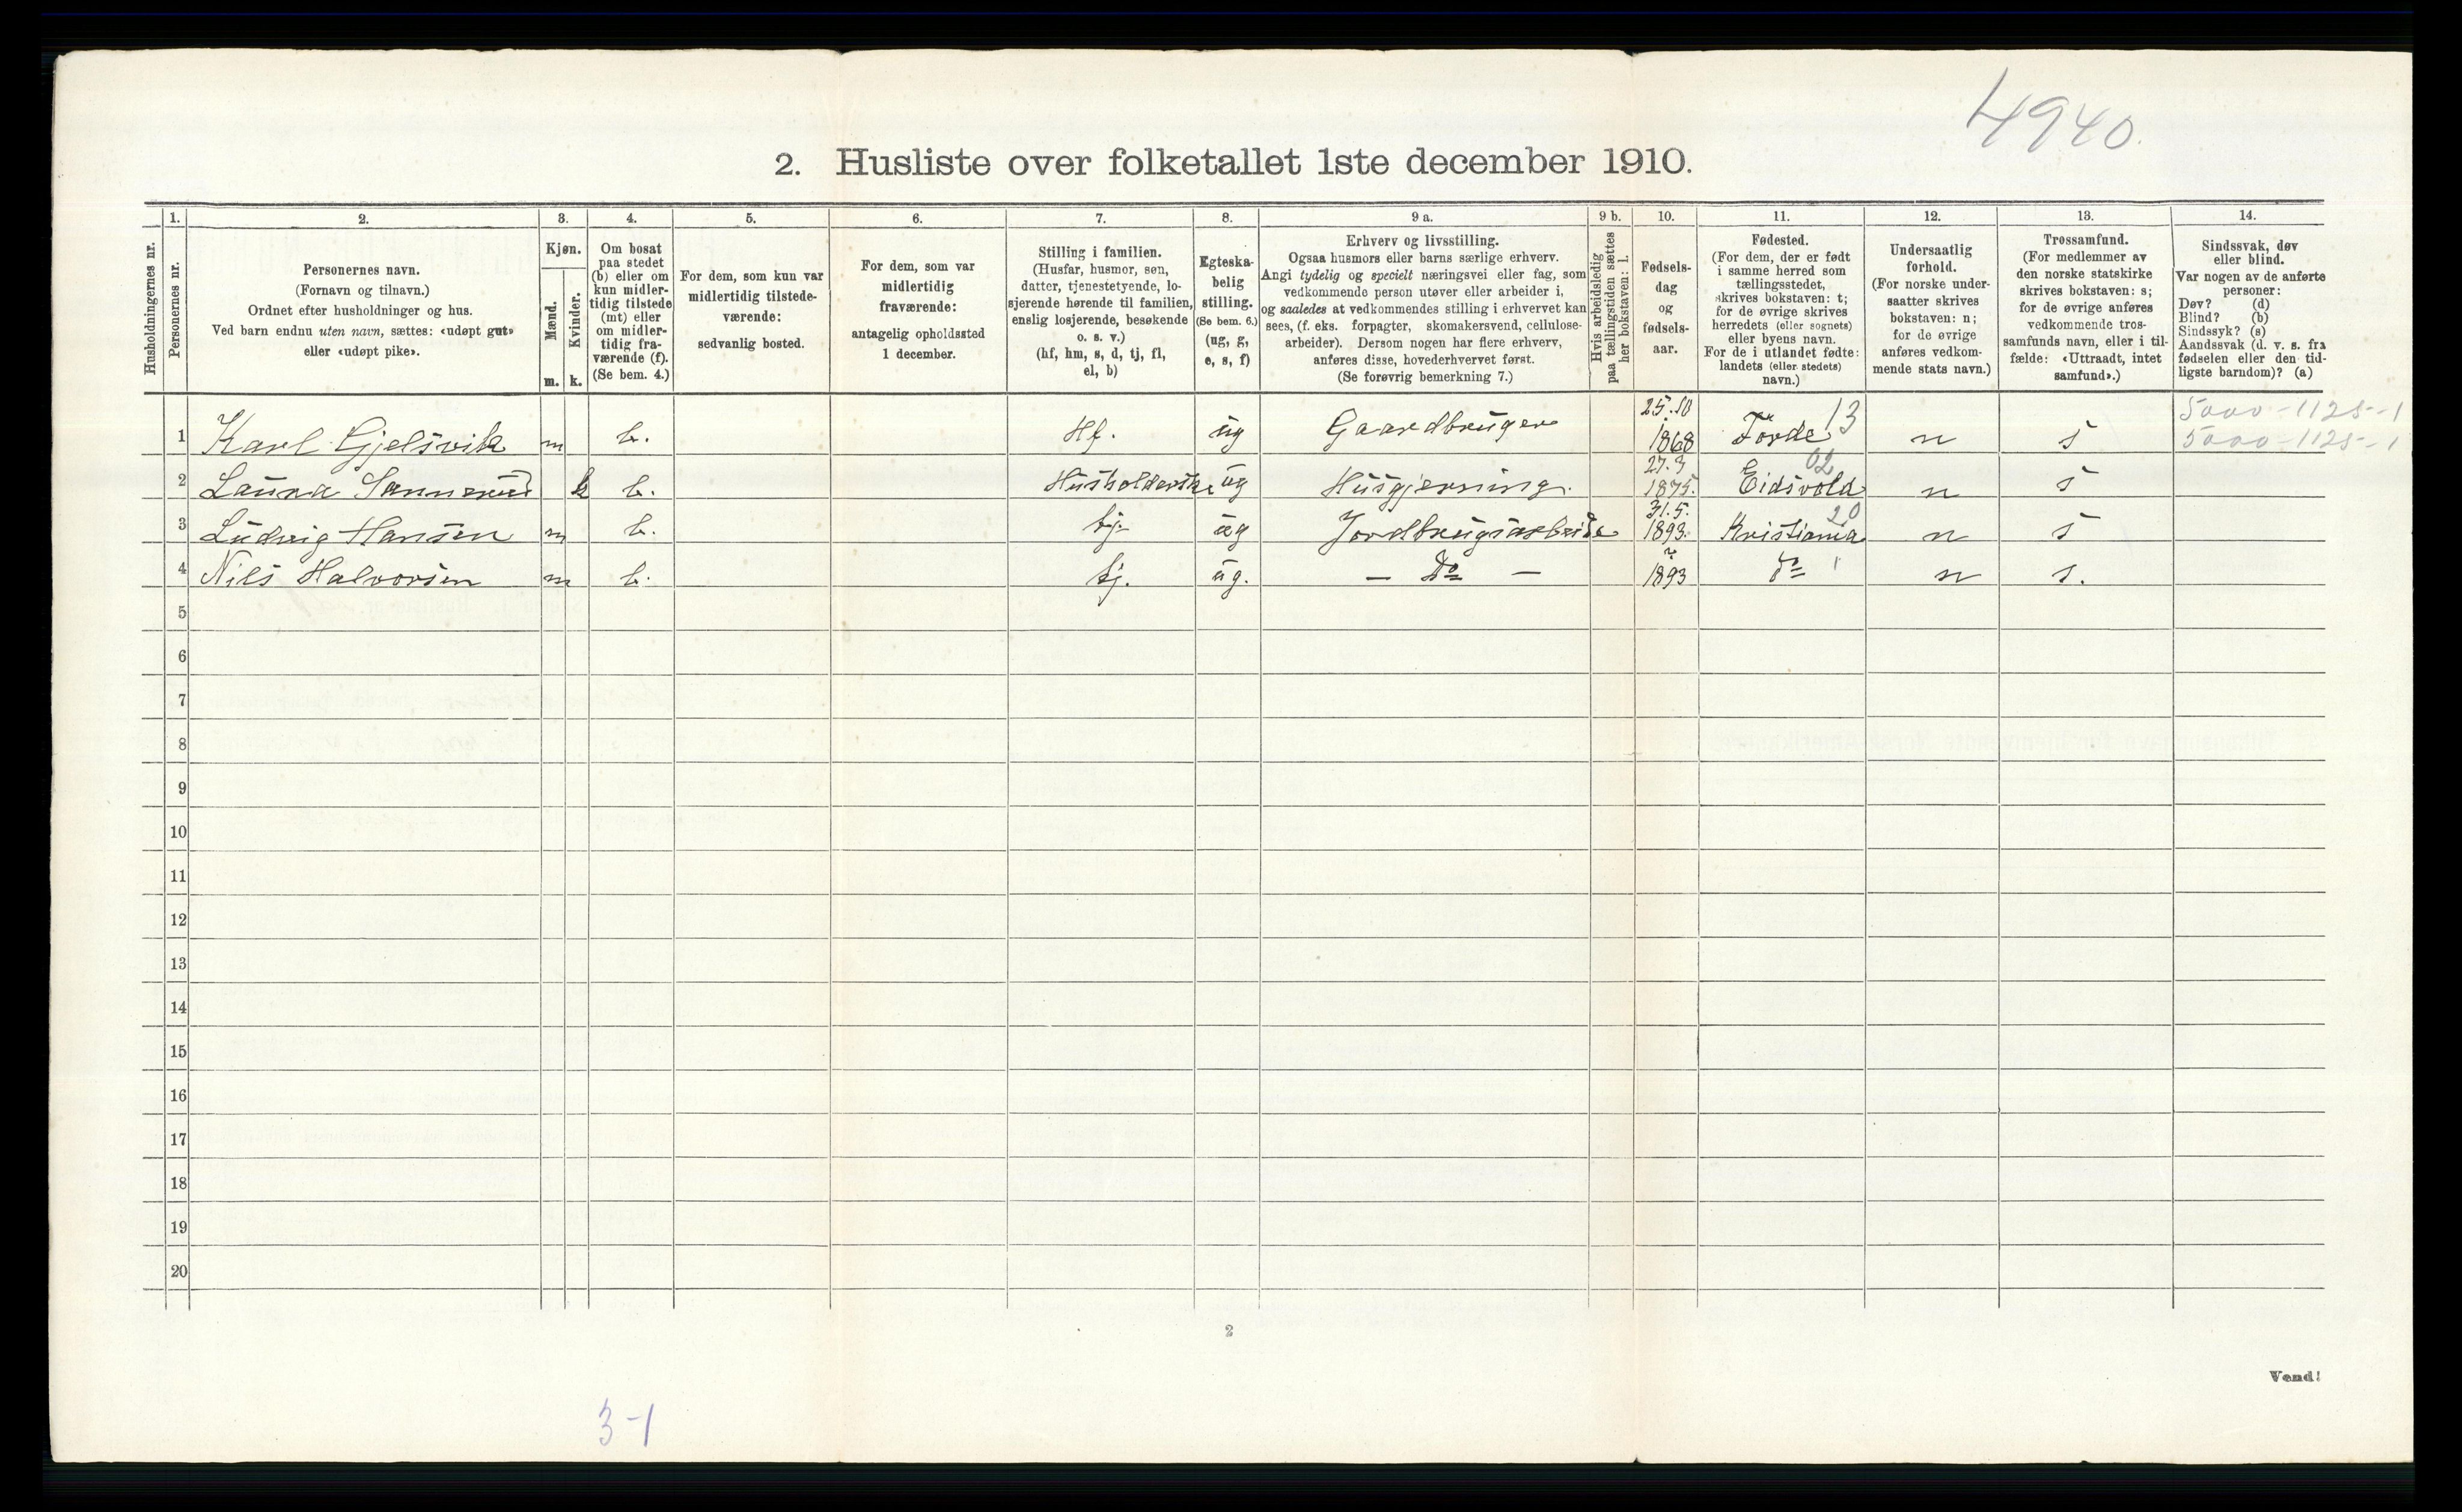 4940.
2. Husliste over folketallet 1ste december 1910.
Husholdningernes nr.
1. Personernes nr.
2. Personernes navn.
(Fornavn og tilnavn.)
Ordnet efter husholdninger og hus.
Ved barn endnu uten navn, sættes: «udøpt gut»
eller «udøpt pike».
3. Kjøn.
Mænd. m.
Kvinder. k.
4. Om bosat
paa stedet
(b) eller om
kun midler-
tidig tilstede
(mt) eller
om midler-
tidig fra-
værende (f).
(Se bem. 4.)
5. For dem, som kun var
midlertidig tilstede-
værende:
sedvanlig bosted.
6. For dem, som var
midlertidig
fraværende:
antagelig opholdssted
1 december.
7. Stilling i familien.
(Husfar, husmor, søn,
datter, tjenestetyende, lo-
sjerende hørende til familien,
enslig losjerende, besøkende
o. s. v.)
(hf, hm, s, d, tj, fl,
el, b)
8. Egteska-
belig
stilling.
(Se bem. 6.)
(ug, g,
e, s, f)
9 a. Erhverv og livsstilling.
Ogsaa husmors eller barns særlige erhverv.
Angi tydelig og specielt næringsvei eller fag, som
vedkommende person utøver eller arbeider i,
og saaledes at vedkommendes stilling i erhvervet kan
sees, (f. eks. forpagter, skomakersvend, cellulose-
arbeider). Dersom nogen har flere erhverv,
anføres disse, hovederhvervet først.
(Se forøvrig bemerkning 7.)
9 b. Hvis arbeidsledig
paa tællingstiden sættes
her bokstaven: l.
10. Fødsels-
dag
og
fødsels-
aar.
11. Fødested.
(For dem, der er født
i samme herred som
tællingsstedet,
skrives bokstaven: t;
for de øvrige skrives
herredets (eller sognets)
eller byens navn.
For de i utlandet fødte:
landets (eller stedets)
navn.)
12. Undersaatlig
forhold.
(For norske under-
saatter skrives
bokstaven: n;
for de øvrige
anføres vedkom-
mende stats navn.)
13. Trossamfund.
(For medlemmer av
den norske statskirke
skrives bokstaven: s;
for de øvrige anføres
vedkommende tros-
samfunds navn, eller i til-
fælde: «Uttraadt, intet
samfund».)
14. Sindssvak, døv
eller blind.
Var nogen av de anførte
personer:
Døv? (d)
Blind? (b)
Sindssyk? (s)
Aandssvak (d. v. s. fra
fødselen eller den tid-
ligste barndom)? (a)
1 Karl Gjelsvik m b. Hf. ug Gaardbruger 25.10 1868 Førde 13 n s 5000-1125-1
5000-1125-1
2 Laura Sannerud k b. Husholderske ug Husgjerning. 1875. Eidsvold 02 n s
3 Ludvig Hansen m b. tj. ug Jordbrugsarbeide 31.5. 1893. Kristiania 20 n s
4 Nils Halvorsen m b. tj. ug. — Do — ? 1893 do n s.
5
6
7
8
9
10
11
12
13
14
15
16
17
18
19
20
2
Vend!
3-1